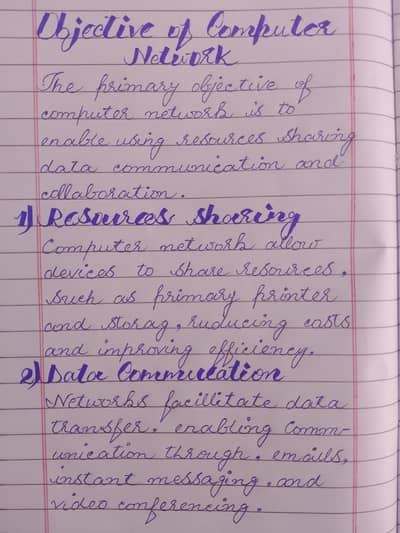 Objective of Computer
Network
The primary objective of
computer network is to
enable using resources sharing
data communication and
collaboration.
1) Resources sharing
Computer network allow
devices to share resources,
such as primary printer
and storag, ruducing costs
and improving efficiency.
2) Data Commucation
Networks facillitate data
transfer. enabling Comm-
unication through. emails,
instant messaging, and
video conferencing.